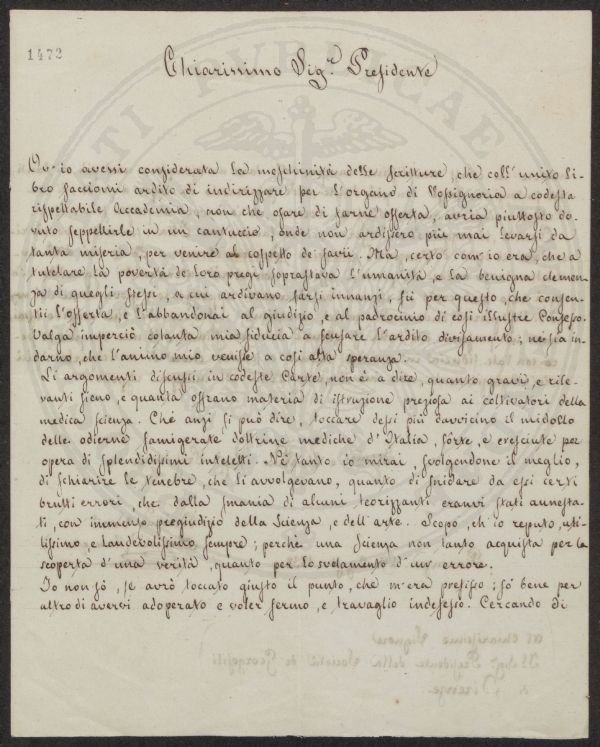 1472
Chiarissimo Sig.re Presidente
Ov' io avessi considerata la meschinità delle scritture, che coll' unito li-
bro facciomi ardito di indirizzare per l'organo di Vossignoria a codesta
rispettabile Accademia, non che osare di farne offerta, avria piuttosto do-
vuto seppellirle in un cantuccio, onde non ardissero più mai levarsi da
tanta miseria, per venire al cospetto de' savii. Ma, certo com' io era, che a
tutelare la povertà de' loro pregi soprastava l'umanità, e la benigna clemen-
za di quegli stessi, a cui ardivano farsi innanzi, fù per questo, che consen-
tii l'offerta, e l'abbandonai al giudizio, e al patrocinio di così illustre Consesso.
Valga imperciò cotanta mia fiducia a scusare l'ardito divisamento; nè sia in-
darno, che l'animo mio venisse a così alta speranza.
Li argomenti discussi in codeste Carte, non è a dire, quanto gravi, e rile-
vanti sieno, e quanta offrano materia di istruzione preziosa ai coltivatori della
medica scienza. Chè anzi si può dire, toccare dessi più davvicino il midollo
delle odierne famigerate dottrine mediche d'Italia, sorte, e cresciute per
opera di splendidissimi inteletti. Nè tanto io mirai, svolgendone il meglio,
di schiarire le tenebre, che li avvolgevano, quanto di snidare da essi certi
brutti errori, che dalla smania di alcuni teorizzanti eranvi stati annesta-
ti, con immenso pregiudizio della Scienza, e dell'arte. Scopo, ch' io reputo, uti-
lissimo, e laudevolissimo sempre; perchè una Scienza non tanto acquista per la
scoperta d'una verità, quanto per lo svelamento d'un errore.
Io non sò, se avrò toccato giusto il punto, che m'era prefisso; sò bene per
altro di avervi adoperato e voler fermo, e travaglio indefesso. Cercando di
Al Chiarissimo Signore
Il Sig.r Presidente della Società de' Georgofili
a Firenze.